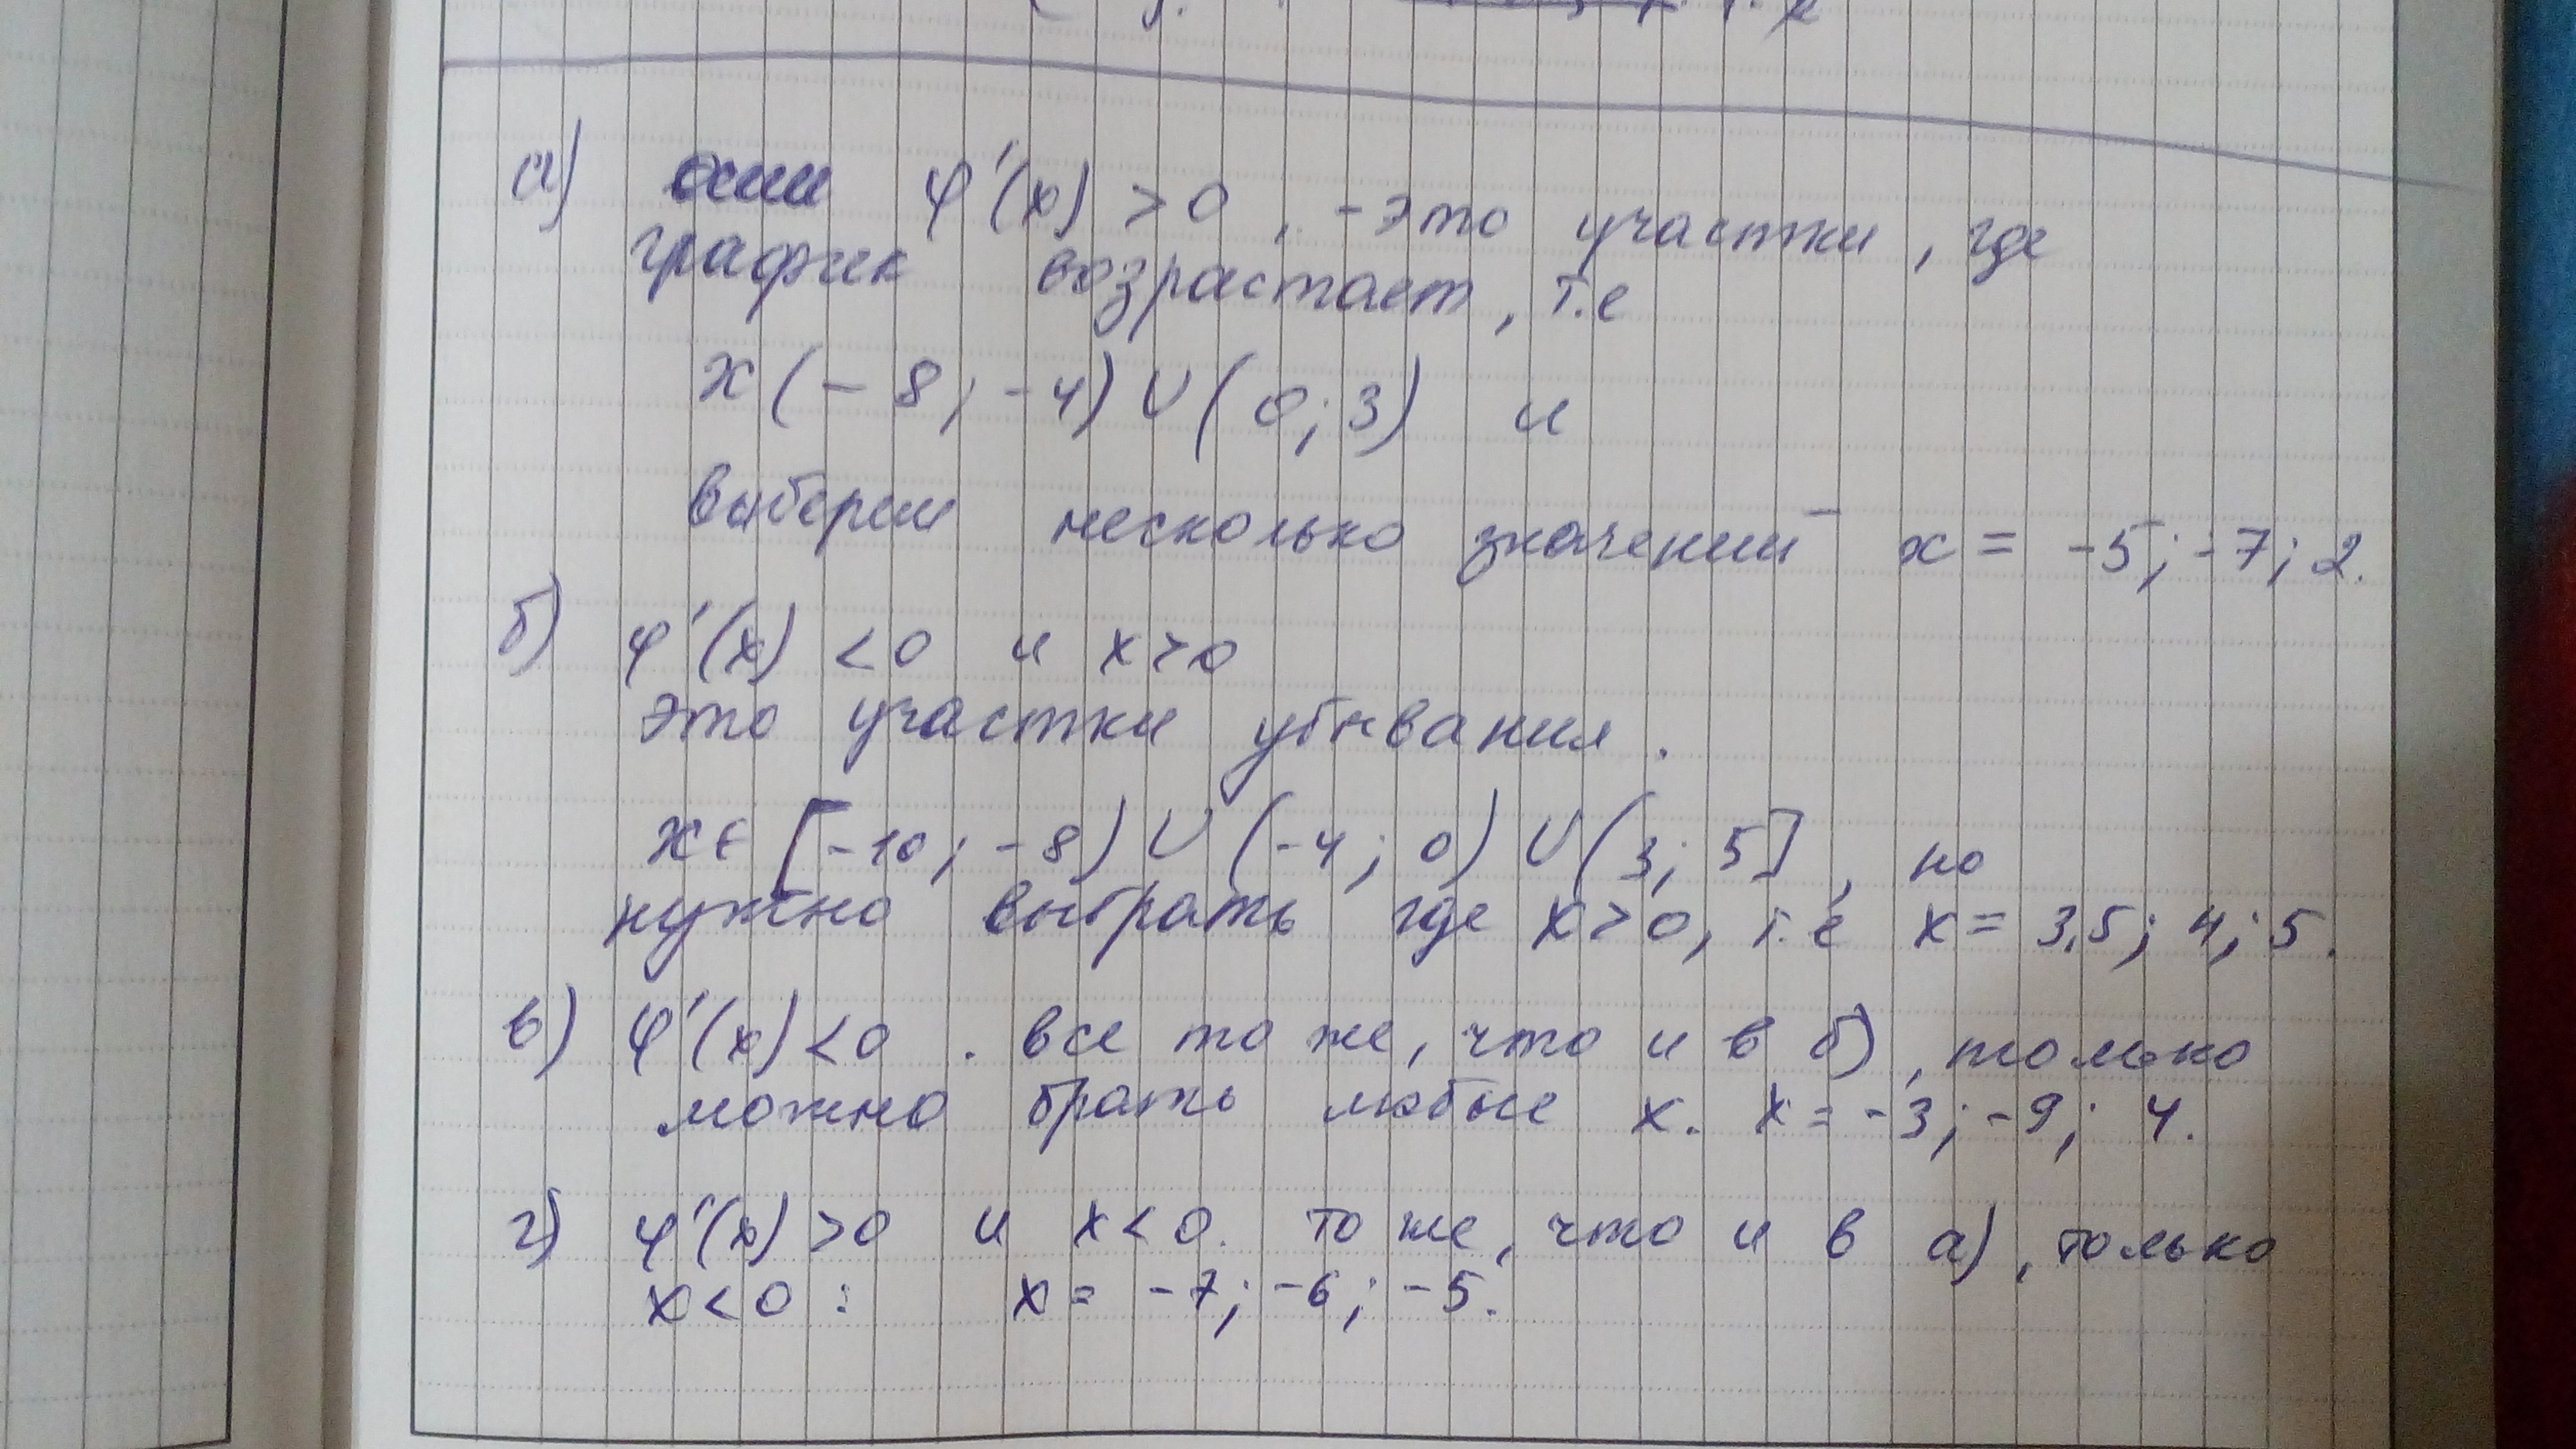 а) если φ'(x) > 0, - это участки, где
график возрастает, т.е
x (- 8; -4) ∪ (0; 3) и
выберем несколько значений x = -5; -7; 2.
б) φ'(x) < 0 и x > 0
это участки убывания.
x ∈ [-10; -8) ∪ (-4; 0) ∪ (3; 5], но
нужно выбрать где x > 0, т.е x = 3,5; 4; 5.
в) φ'(x) < 0. все то же, что и в б), только
можно брать любые x. x = -3; -9; 4.
г) φ'(x) > 0 и x < 0. то же, что и в а), только
x < 0 : x = -7; -6; -5.